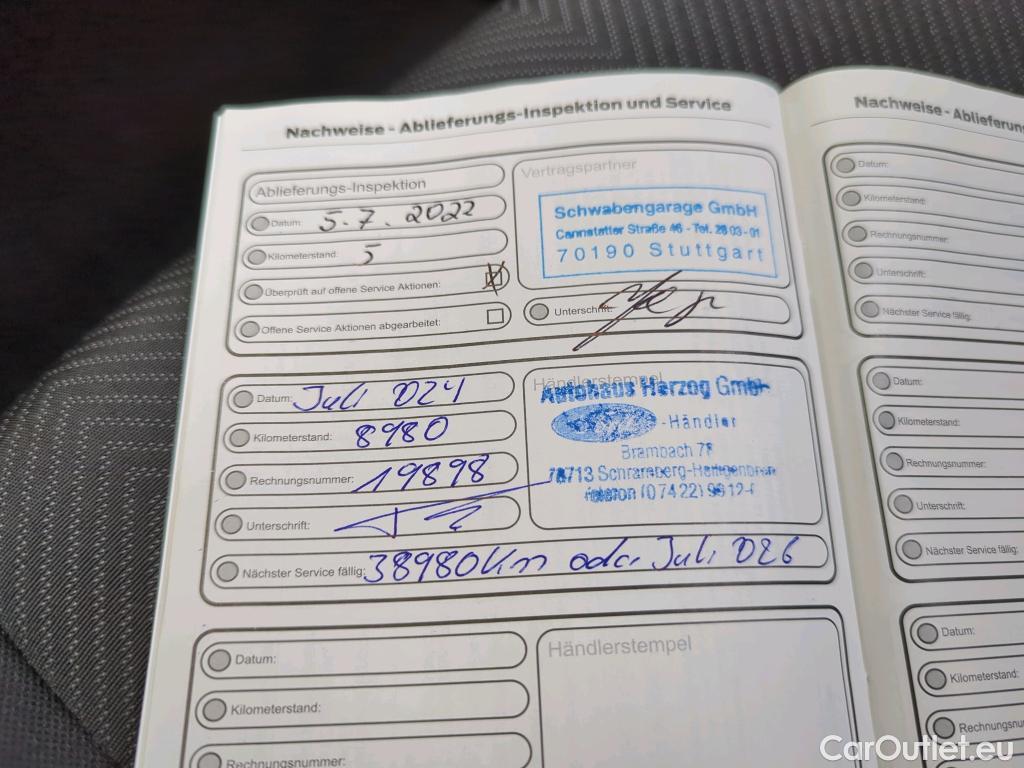 Nachweise - Ablieferungs-Inspektion und Service
Ablieferungs-Inspektion
Datum: 5.7.2022
Kilometerstand: 5
Überprüft auf offene Service Aktionen:
Offene Service Aktionen abgearbeitet:
Vertragspartner
Schwabengarage GmbH
Cannstatter Straße 46 - Tel. 28 03-01
70190 Stuttgart
Unterschrift:
Datum: Juli 024
Kilometerstand: 8980
Rechnungsnummer: 19898
Unterschrift:
Nächster Service fällig: 38980 km oder Juli 026
Händlerstempel
Autohaus Herzog GmbH
-Händler
Brambach 78
78713 Schramberg-Heiligenbronn
Telefon (07422)
Datum:
Kilometerstand:
Rechnungsnummer:
Händlerstempel
Nachweise - Ablieferun
Datum:
Kilometerstand:
Rechnungsnummer:
Unterschrift:
Nächster Service fällig:
Datum:
Kilometerstand:
Rechnungsnummer:
Unterschrift:
Nächster Service fällig:
Datum:
Kilometerstand:
Rechnungsnummer:
CarOutlet.eu